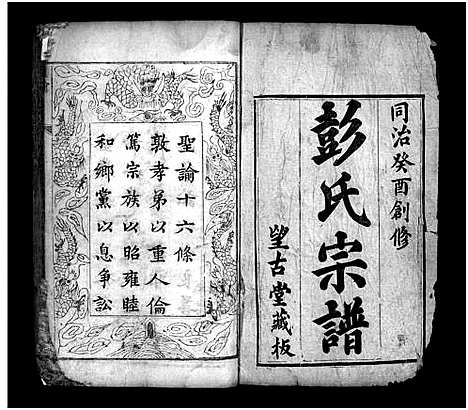 同治癸酉創修
彭氏宗譜
望古堂藏板
聖諭十六條
敦孝弟以重人倫
篤宗族以昭雍睦
和鄉黨以息爭訟